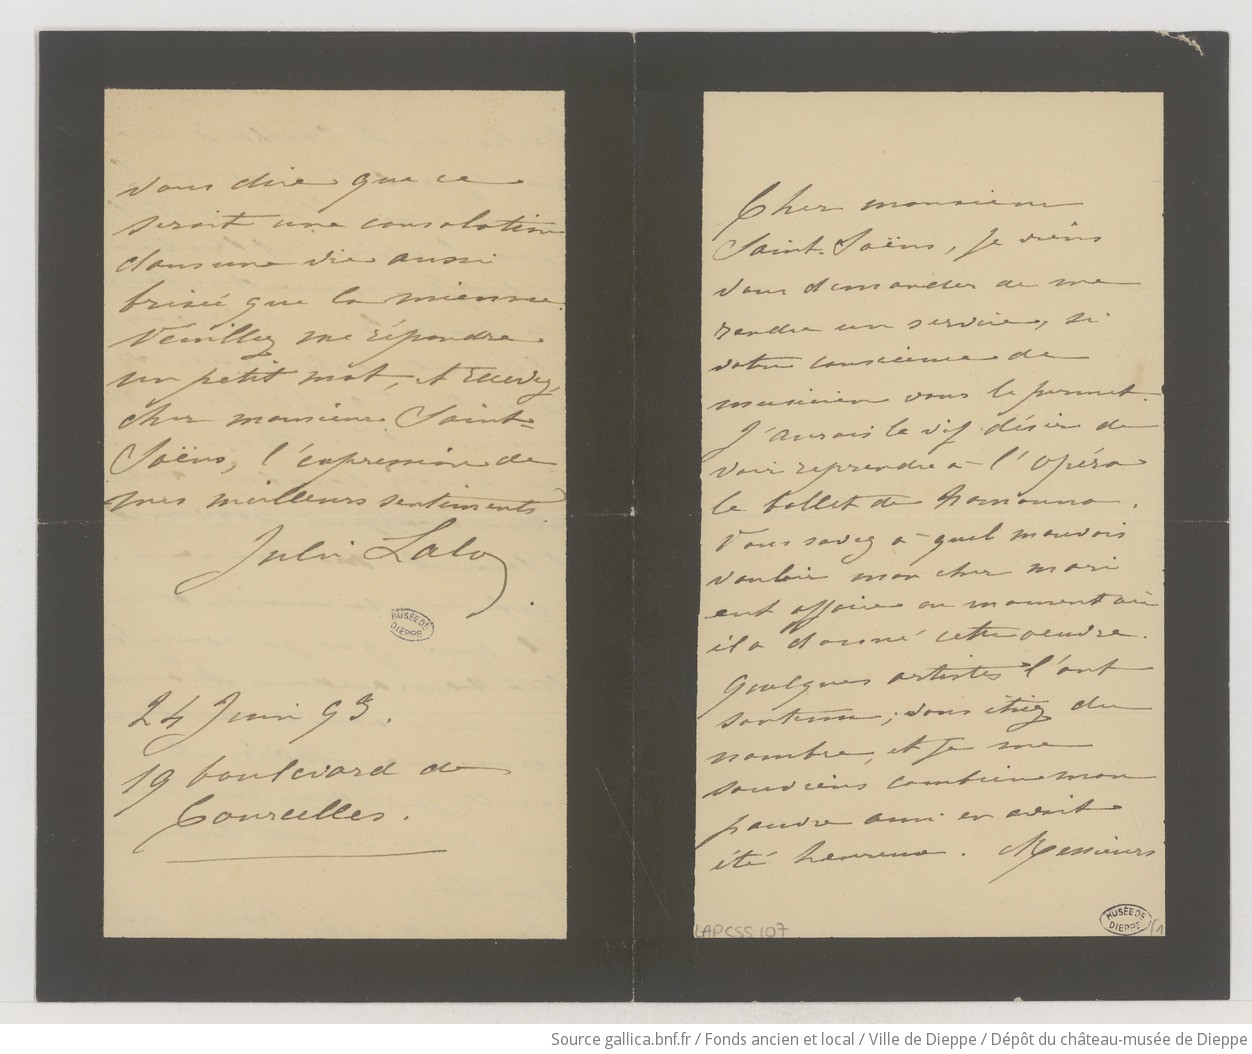 Cher monsieur
Saint-Saëns, je viens
vous demander de me
rendre un service, si
votre conscience de
musicien vous le permet.
J'aurais le vif désir de
voir reprendre à l'opéra
le ballet de Namouna.
Vous savez à quel mauvais
vouloir mon cher mari
eut affaire au moment où
il a donné cette oeuvre.
Quelques artistes l'ont
soutenu; vous étiez du
nombre, et je me
souviens combien mon
pauvre ami en avait
été heureux. Messieurs
LAPCSS 107
MUSÉE DE
DIEPPE
vous dire que ce
serait une consolation
dans une vie aussi
brisée que la mienne.
Veuillez me répondre
un petit mot, et recevez,
cher monsieur Saint-
Saëns, l'expression de
mes meilleurs sentiments.
Julie Lalo
MUSÉE DE
DIEPPE
24 Juin 93.
19 boulevard de
Courcelles.
Source gallica.bnf.fr / Fonds ancien et local / Ville de Dieppe / Dépôt du château-musée de Dieppe